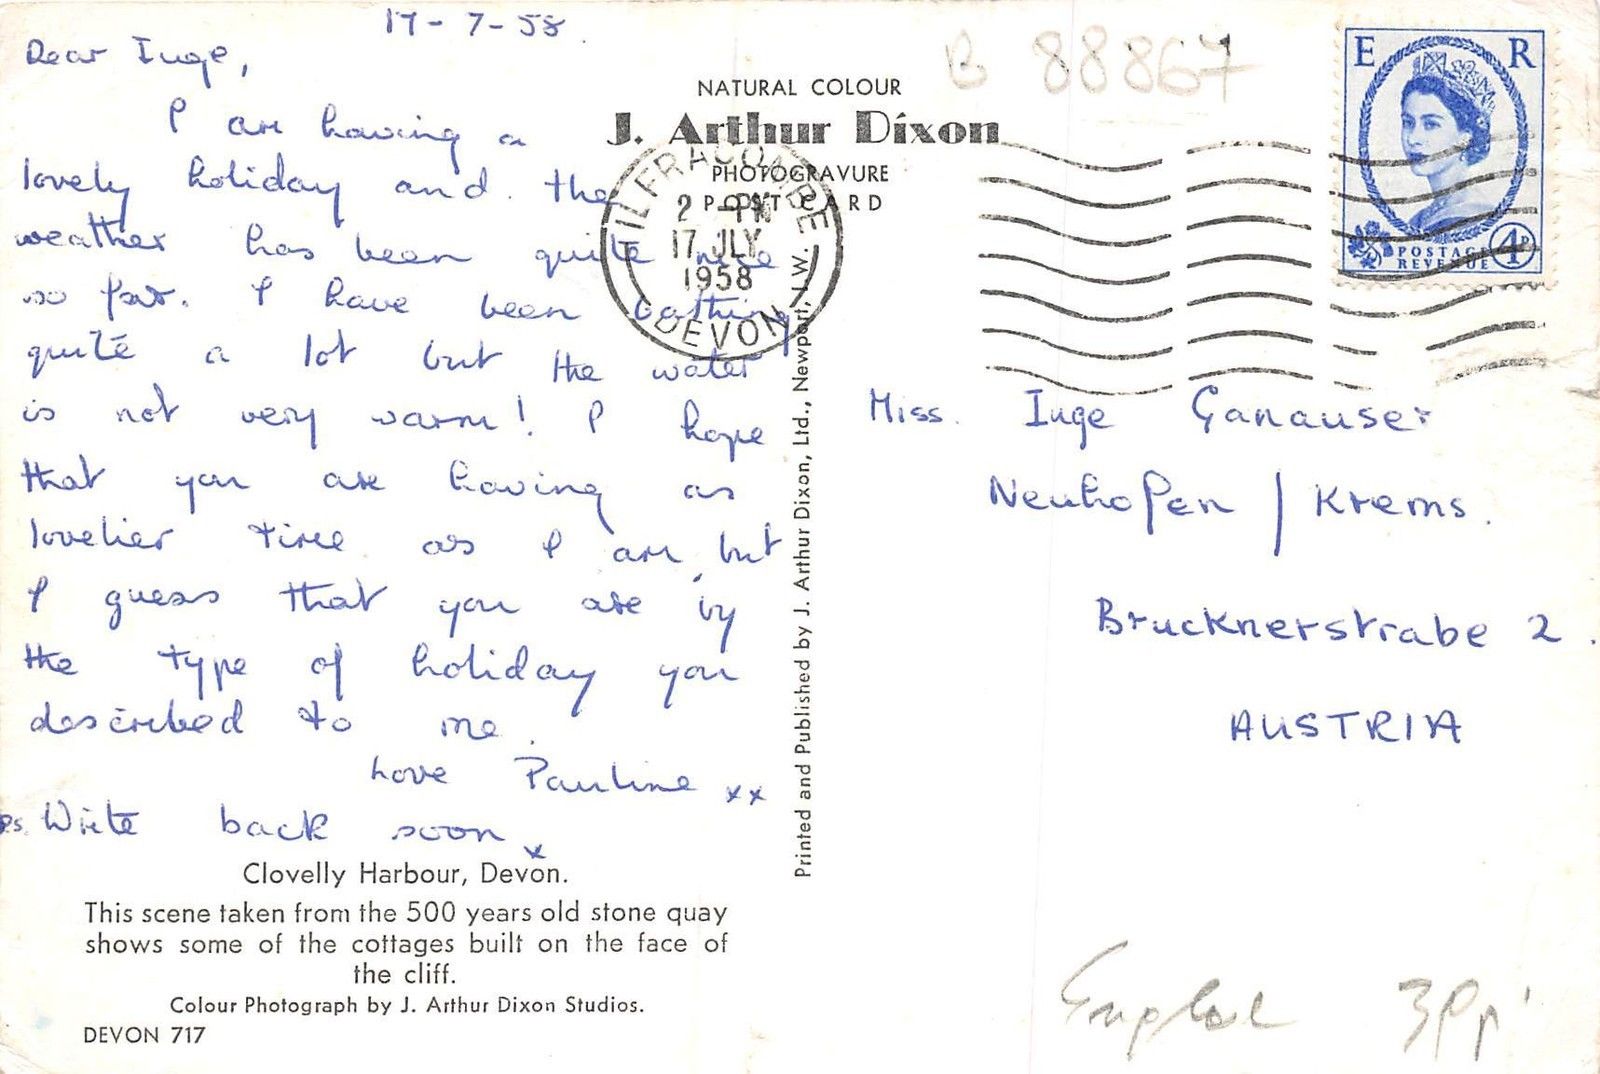 17-7-58.
Dear Inge,
I am having a
lovely holiday and the
weather has been quite nice
so far. I have been bathing
quite a lot but the water
is not very warm! I hope
that you are having as
lovelier time as I am, but
I guess that you are by
the type of holiday you
described to me.
Love Pauline xx
Ps. Write back soon x
Clovelly Harbour, Devon.
This scene taken from the 500 years old stone quay
shows some of the cottages built on the face of
the cliff.
Colour Photograph by J. Arthur Dixon Studios.
DEVON 717
NATURAL COLOUR
J. Arthur Dixon
PHOTOGRAVURE
POST CARD
ILFRACOMBE
2 - PM
17 JLY
1958
DEVON
Printed and Published by J. Arthur Dixon, Ltd., Newport, I.W.
B 88867
E R
POSTAGE
REVENUE
4D
Miss. Inge Ganauser
Neuhofen / Krems.
Brucknerstrabe 2.
AUSTRIA